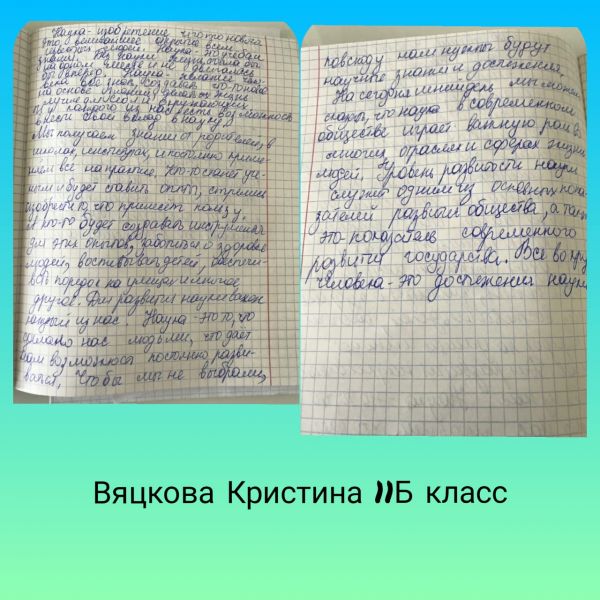 Наука - изобретение чего-то нового
это величайшее открытие всем
людей. Наука - это учебам
знания. Без науки жизнь была бы
на одном месте и не двигалась
бы вперёд. Наука - желание
всем всё знать, создавать что-то новое
на основе делать жизнь
лучше для всех и окружающих
и у каждого из нас есть возможность
внести свой вклад в науку.
Мы получаем знания от родителей, в
школах, институтах, и постоянно приме-
няем всё на практике. Кто-то станет уче-
ным и будет ставить опыты, стремясь
изобрести то, что принесёт пользу,
а кто-то будет создавать инструменты
для этих опытов, заботиться о здоровье
людей, воспитывать детей, обеспечи-
вать порядок на улицах и многое
другое. Для развития науки важен
каждый из нас. Наука - это то, что
сделало нас людьми, что даёт
нам возможность постоянно разви-
ваться, Чтобы мы не выбрали,
повсюду нам нужны будут
научные знания и достижения.
На сегодняшний день мы можем
сказать, что наука в современном
обществе играет важную роль во
многих отраслях и сферах жизни
людей. Уровень развитости науки
служит одним из основных пока-
зателей развития общества, а также
это - показатель современного
развития государства. Всё вокруг
человека - это достижения науки
Вяцкова Кристина 11Б класс